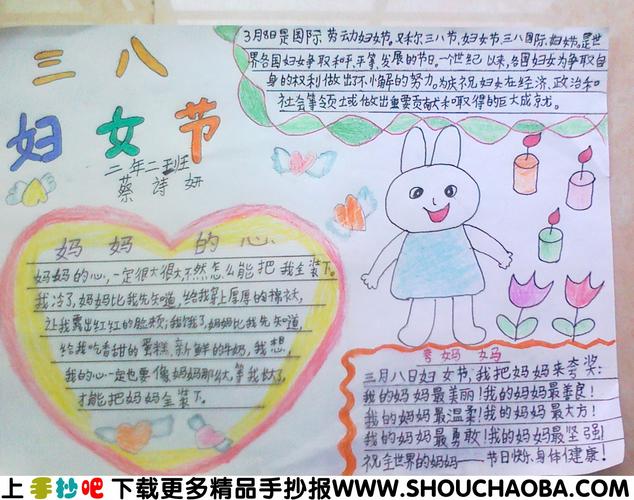 三八
妇女节
二年二班
蔡诗妍
3月8日是国际劳动妇女节。又称三八节、妇女节、三八国际妇女节。是世
界各国妇女争取和平、平等、发展的节日。一个世纪以来,各国妇女为争取自
身的权利做出不小解的努力。为庆祝妇女在经济、政治和
社会等领土或做出重要贡献和取得的巨大成就。
妈妈的心
妈妈的心,一定很大很大不然怎么能把我全装下。
我冷了,妈妈比我先知道,给我穿上厚厚的棉袄,
让我露出红红的脸颊;我饿了,妈妈比我先知道,
给我吃香甜的蛋糕、新鲜的牛奶,我想,
我的心一定也要像妈妈那么大,等我长大了,
才能把妈妈全装下。
夸妈妈
三月八日妇女节,我把妈妈来夸奖:
我的妈妈最美丽!我的妈妈最善良!
我的妈妈最温柔!我的妈妈最大方!
我的妈妈最勇敢!我的妈妈最坚强!
祝全世界的妈妈——节日快乐,身体健康!
上手抄吧 下载更多精品手抄报WWW.SHOUCHAOBA.COM